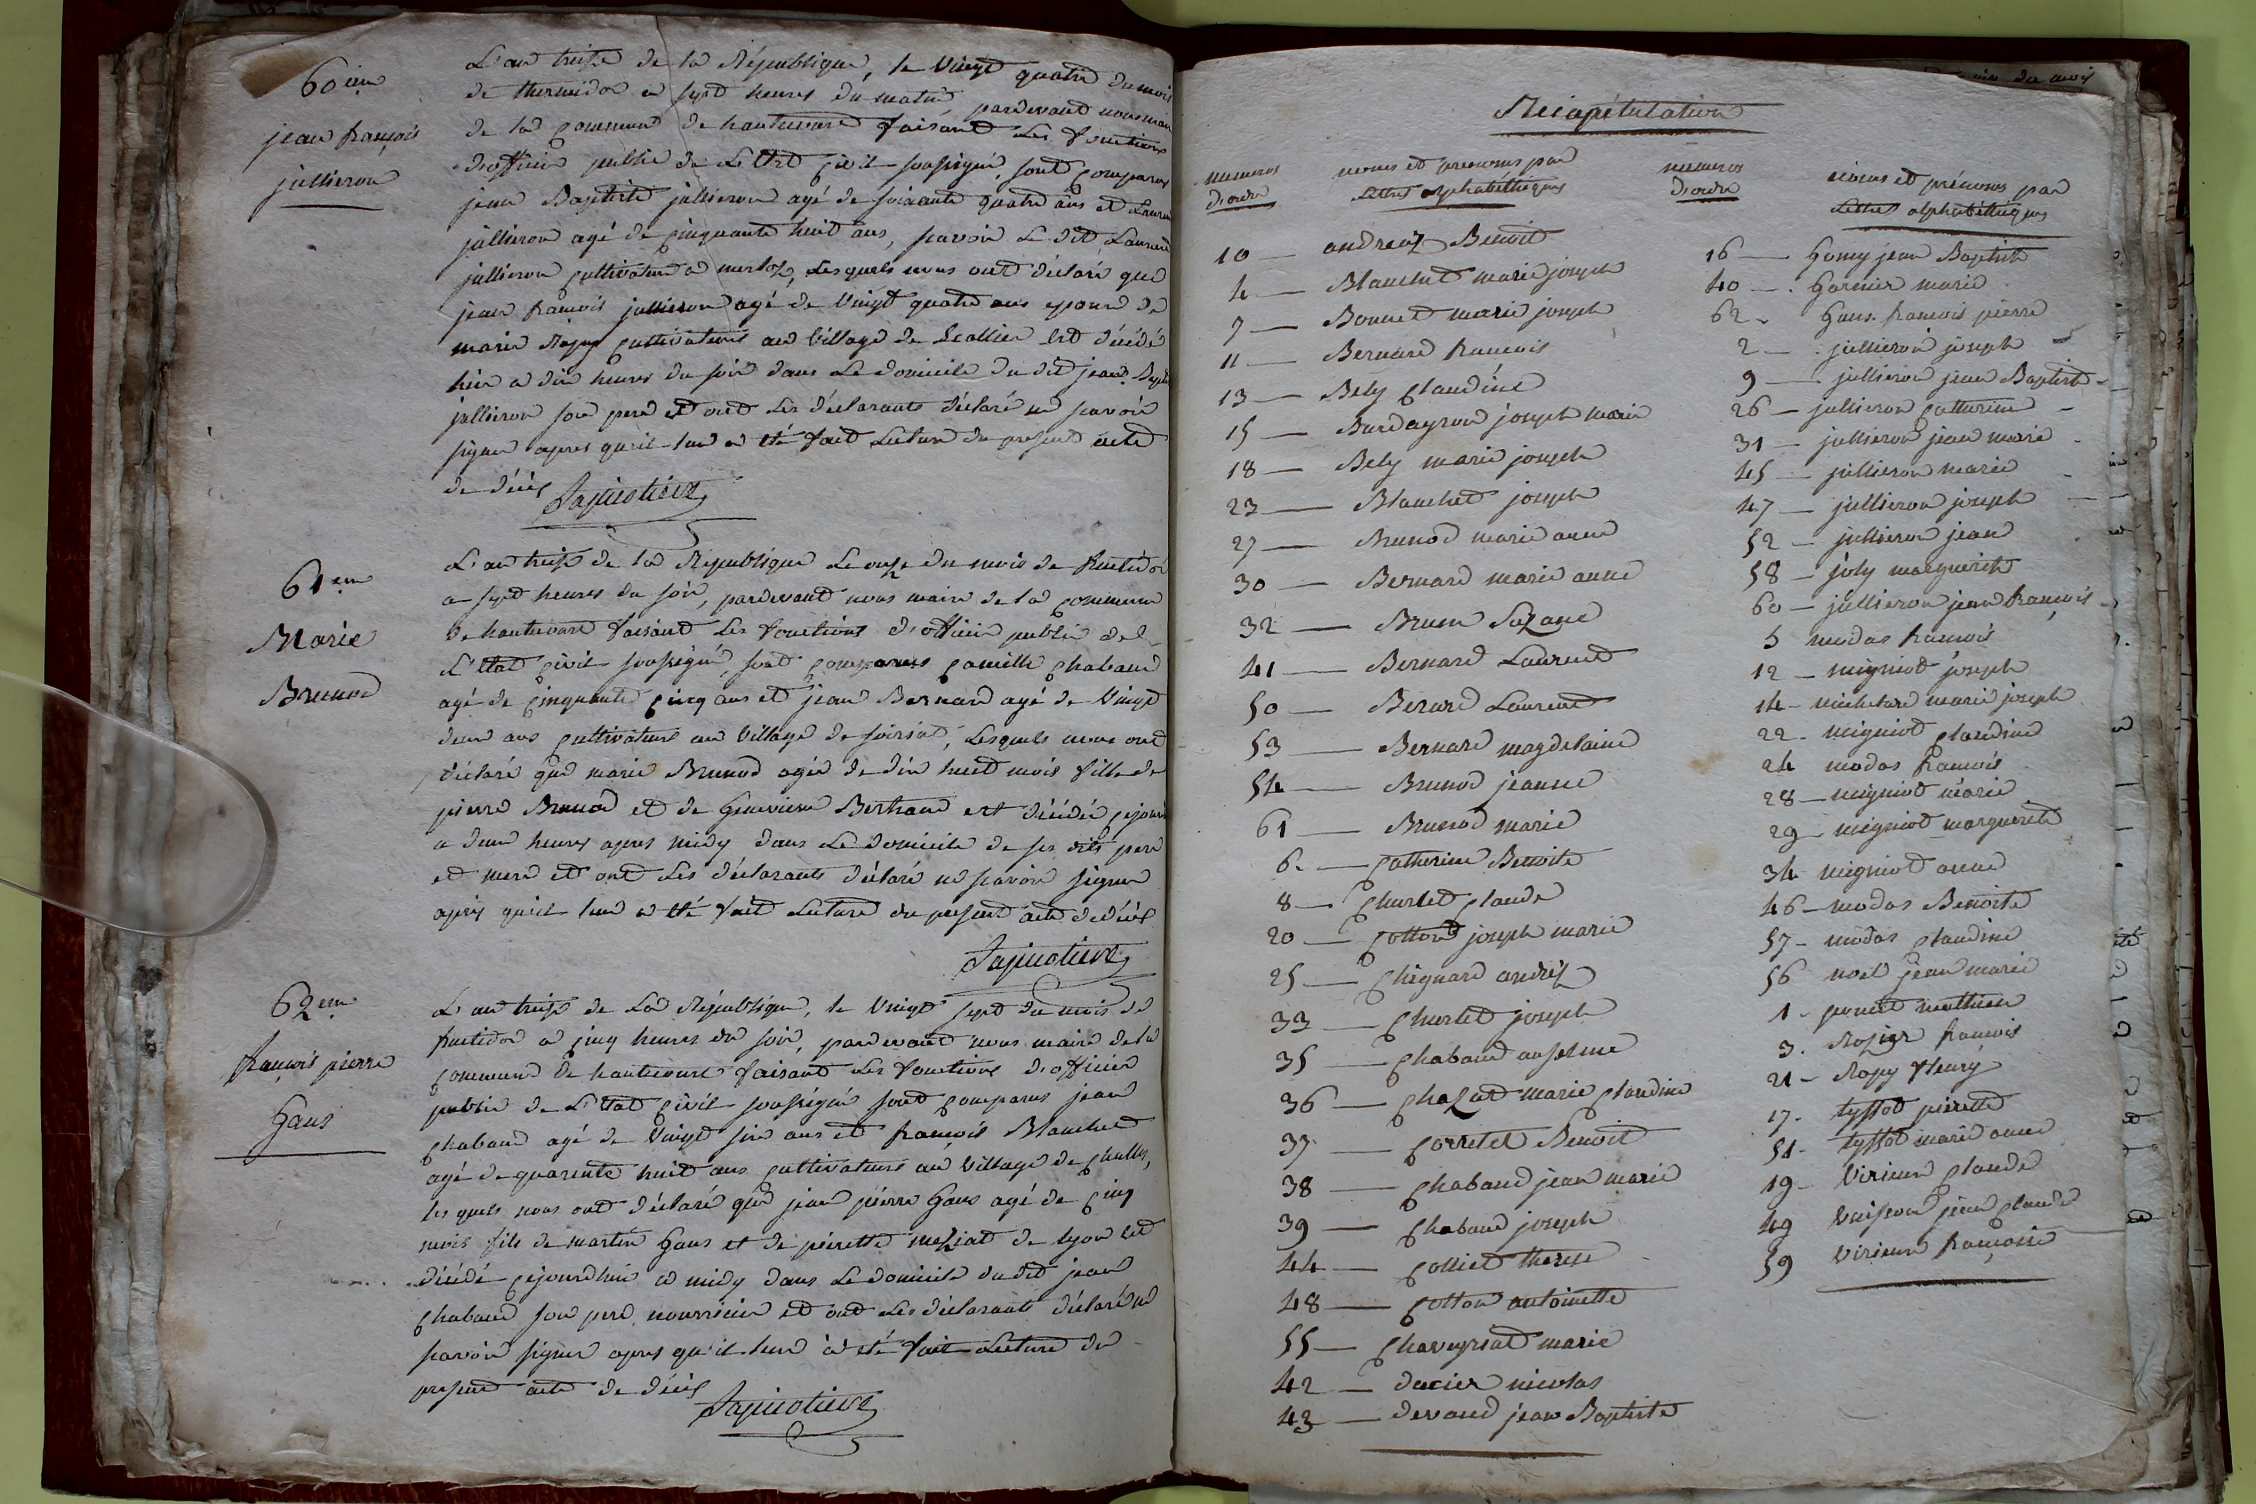 60ieme
jean françois
jullieron
L'an treize de la République, le Vingt quatre du mois
de thermidor a sept heures du matin pardevant nous maire
de la Commune de hautecourt faisant Les fonctions
d'officier public de L'Etat Civil soussigné, sont Comparus
jean Baptiste jullieron agé de soixante quatre ans et Laurent
jullieron agé de Cinquante huit ans, savoir Le dit Laurent
jullieron Cultivateur a Lesquels nous ont déclaré que
jean françois jullieron agé de Vingt quatre ans epoux de
marie Ropuy Cultivateurs au Village de Est décédé
hier a dix heures du soir dans Le domicile du dit jean Baptiste
jullieron son pere et ont Les déclarants déclaré ne savoir
signer apres qu'il leur a eté fait Lecture du present acte
de décès
61em
Marie
Brunod
L'an treize de la République Le onze du mois de fructidor
a sept heures du soir, pardevant nous maire de la Commune
de hautecourt faisant Les fonctions d'officier public de
L'Etat Civil soussigné, sont Comparus Camille Chabaud
agé de Cinquante Cinq ans et jean Bernard agé de Vingt
deux ans Cultivateurs au Village de Lesquels nous ont
déclaré que marie Brunod agée de dix huit mois fille de
pierre Brunod et de Genevieve Bertrand est décédée Cejourd
a deux heures apres midy dans Le domicile de ses dits pere
et mere et ont Les déclarants déclaré ne savoir signer
après qu'il leur a eté fait Lecture du present acte de décès
62em
françois pierre
Gans
L'an treize de La République, le Vingt sept du mois de
fructidor a Cinq heures du soir, pardevant nous maire de la
Commune de hautecourt faisant Les fonctions d'officier
public de L'Etat Civil soussigné sont Comparus jean
Chabaud agé de Vingt six ans et françois Blanchet
agé de quarante huit ans Cultivateurs au Village de
lesquels nous ont déclaré que jean pierre Gans agé de Cinq
mois fils de martin Gans et de pierrette meziat de lyon est
décédé Cejourdhui a midy dans Le domicile du dit jean
Chabaud son pere nourricier et ont Les déclarants déclaré ne
savoir signer apres qu'il leur a eté fait Lecture du
present acte de décès
Récapitulation
numeros
d'ordre
noms et prenoms par
Lettres alphabéthiques
10 — andreaz Benoit
4 — Blanchet marie joseph
7 — Bonnet marie joseph
11 — Bernard francois
13 — Bely Claudine
15 — Burdayron joseph marie
18 — Bely marie joseph
23 — Blanchet joseph
27 — Brunod marie anne
30 — Bernard marie anne
32 — Brunn Suzane
41 — Bernard Laurent
50 — Berard Laurent
53 — Bernard magdelaine
54 — Brunod jeanne
61 — Brunod marie
6. — Catherine Benoite
8 — Charlet Claude
20 — Cotton joseph marie
25 — Chignard andréz
33 — Charlet joseph
35 — Chabaud anselme
36 — Chazat marie Claudine
37 — Corretet Benoit
38 — Chabaud jean marie
39 — Chabaud joseph
44 — Colliet therese
48 — Cotton antoinette
55 — Chaveyriat marie
42 — ducier nicolas
43 — devaud jean Baptiste
numeros
d'ordre
noms et prénoms par
Lettres alphabéthiques
16 — Gomy jean Baptiste
40 — Garnier marie
62 - Gans francois pierre
2 — jullieron joseph
9 — jullieron jean Baptiste
26 — jullieron Catherine
31 — jullieron jean marie
45 — jullieron marie
47 — jullieron joseph
52 — jullieron jean
58 — joly marguerite
60 — jullieron jean françois
5 modas francois
12 — migniot joseph
14 — michelard marie joseph
22 - migniot Claudine
24 modas francois
28 — migniot marie
29 — migniot marguerite
34 migniot anne
46 — modas Benoite
57 - modas Claudine
56 noel jean marie
1 - poncet mathieu
3. Rozier francois
21 - Ropy fleury
17 - tyssot pierrette
51 - tyssot marie anne
19 - Virieux Claude
49 Buisson jean Claude
59 Virieux francoise